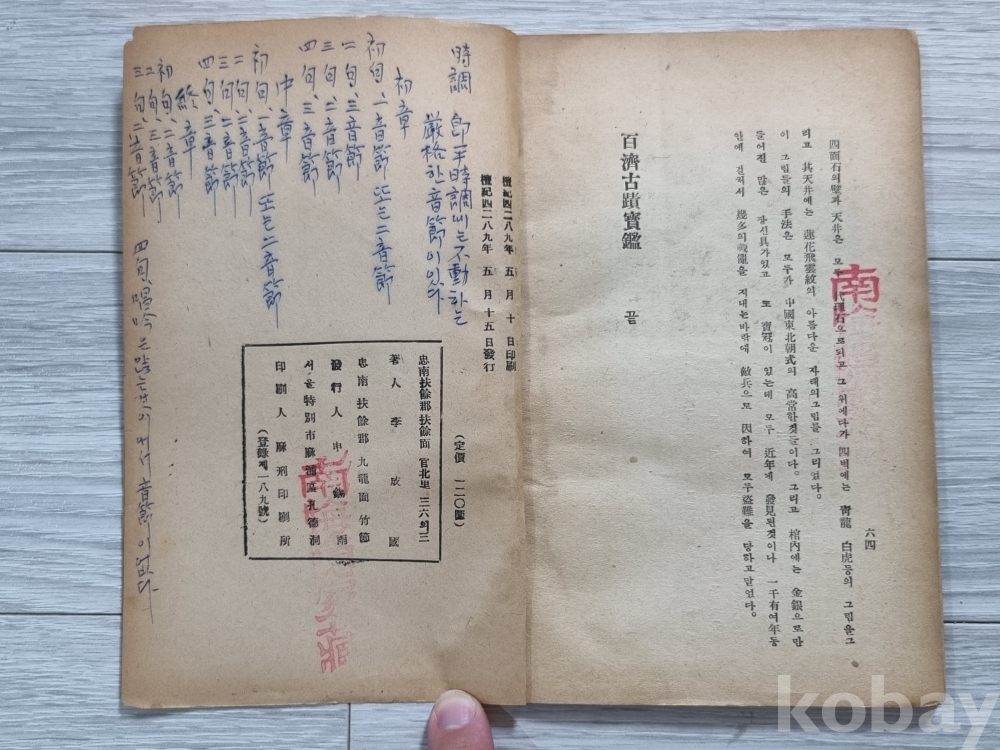 六四
四面石의壁과 天井은 모두 大理石으로되고 그 위에다가 四벽에는 靑龍 白虎등의 그림을그
리고 其天井에는 蓮花飛雲紋의 아름다운 자태의그림을 그리었다。
이 그림들의 手法은 모두가 中國東北朝式의 高常한것들이다。그리고 棺內에는 金銀으로만
들어진 많은 장신具가있고 또 寶冠이 있는데 모두 近年에 發見된것이나 一千有여年동
안에 걸쳐서 幾多의戰亂을 지내는바람에 敵兵으로 因하여 모두盜難을 당하고말었다。
百濟古蹟寶鑑 끝
南
檀紀四二八九年 五月 十日印刷
檀紀四二八九年 五月十五日發行
(定價 一二〇圜)
忠南扶餘郡扶餘面 官北里 三六의三
著人 李 政 國
忠南扶餘郡九龍面竹節
發行人 申 鶴 雨
서울特別市麻浦區孔德洞
印刷人 麻刑印刷所
(登錄제一八九號)
南
時調 即平時調에는不動하는
嚴格한音節이있다
初章
初句、二音節 또는二音節
二句、三音節
三句、二音節
四句、三音節
中章
初句、一音節 또는二音節
二句、二音節
三句、二音節
四句、三音節
終章
初句、二音節
二句、三音節
三句、二音節
四句、唱吟은않는것이라서 音節이없다